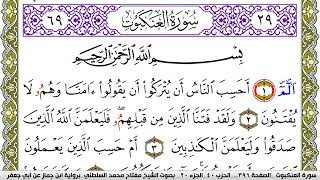 ٦٩ سُورَةُ العَنكَبُوتِ ٢٩
بِسْمِ اللَّهِ الرَّحْمَٰنِ الرَّحِيمِ
الٓمٓ ١ أَحَسِبَ النَّاسُ أَن يُتْرَكُوا أَن يَقُولُوا ءَامَنَّا وَهُمُ لَا
يُفْتَنُونَ ٢ وَلَقَدْ فَتَنَّا الَّذِينَ مِن قَبْلِهِمُ فَلَيَعْلَمَنَّ اللَّهُ الَّذِينَ
صَدَقُوا وَلَيَعْلَمَنَّ الْكَٰذِبِينَ ٣ أَمْ حَسِبَ الَّذِينَ يَعْمَلُونَ
سورة العنكبوت . الصفحة ٣٩٦ . الحزب ٤٠ . الجزء ٢٠ . بصوت الشيخ مفتاح محمد السلطني . برواية ابن جماز عن أبي جعفر